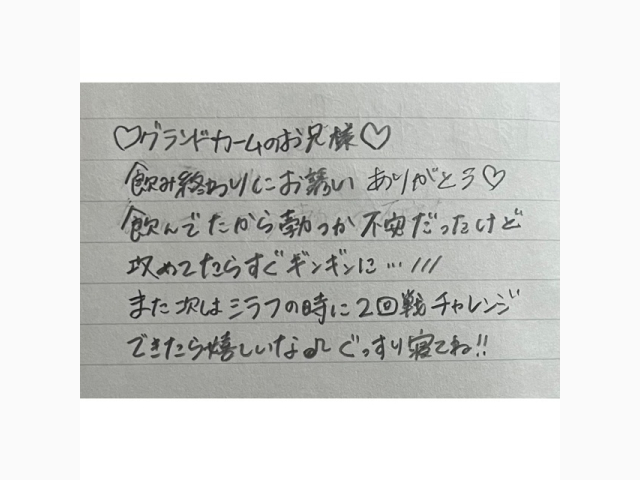 ♡グランドカームのお兄様♡
飲み終わりにお誘い ありがとう♡
飲んでたから勃つか不安だったけど
攻めてたらすぐギンギンに…///
また次はシラフの時に2回戦チャレンジ
できたら嬉しいな♫ ぐっすり寝てね!!